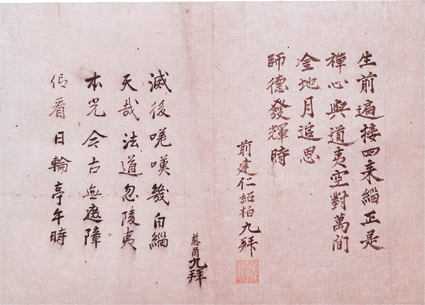 生前遍接四来緇正是
禅心與道夷空對萬间
金地月追思
師德發輝時
前建仁紹柏九拜
滅後嗟嘆幾白緇
天哉法道忽陵夷
本光今古無遮障
看日輪亭午時
慈 九拜